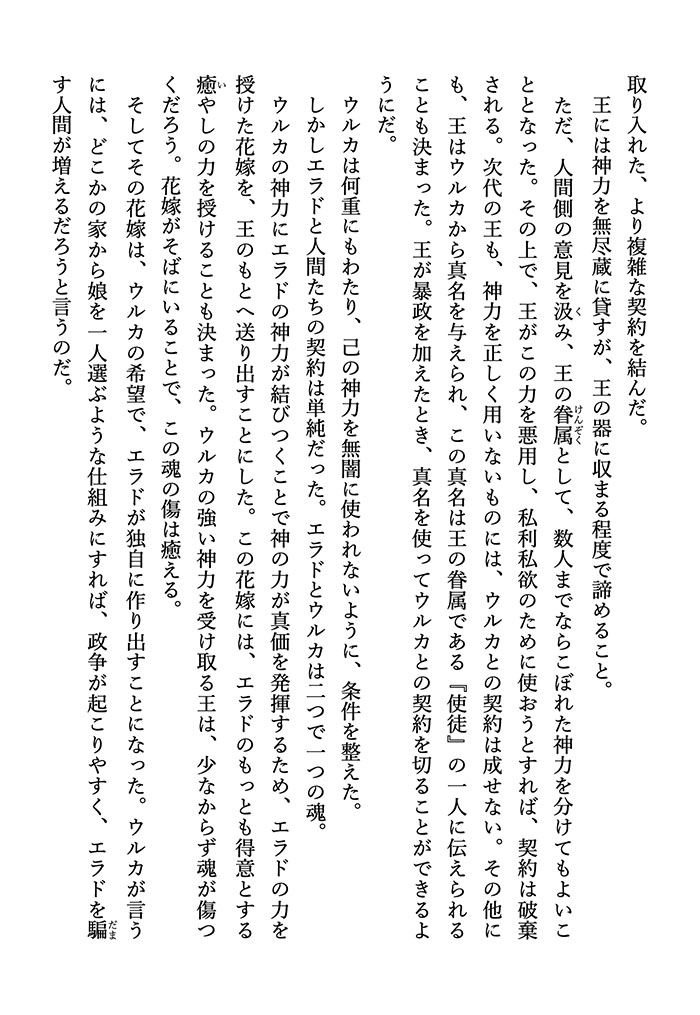 取り入れた、より複雑な契約を結んだ。
王には神力を無尽蔵に貸すが、王の器に収まる程度で諦めること。
ただ、人間側の意見を汲み、王の眷属として、数人までならこぼれた神力を分けてもよいこ
ととなった。その上で、王がこの力を悪用し、私利私欲のために使おうとすれば、契約は破棄
される。次代の王も、神力を正しく用いないものには、ウルカとの契約は成せない。その他に
も、王はウルカから真名を与えられ、この真名は王の眷属である『使徒』の一人に伝えられる
ことも決まった。王が暴政を加えたとき、真名を使ってウルカとの契約を切ることができるよ
うにだ。
ウルカは何重にもわたり、己の神力を無闇に使われないように、条件を整えた。
しかしエラドと人間たちの契約は単純だった。エラドとウルカは二つで一つの魂。
ウルカの神力にエラドの神力が結びつくことで神の力が真価を発揮するため、エラドの力を
授けた花嫁を、王のもとへ送り出すことにした。この花嫁には、エラドのもっとも得意とする
癒やしの力を授けることも決まった。ウルカの強い神力を受け取る王は、少なからず魂が傷つ
くだろう。花嫁がそばにいることで、この魂の傷は癒える。
そしてその花嫁は、ウルカの希望で、エラドが独自に作り出すことになった。ウルカが言う
には、どこかの家から娘を一人選ぶような仕組みにすれば、政争が起こりやすく、エラドを騙
す人間が増えるだろうと言うのだ。